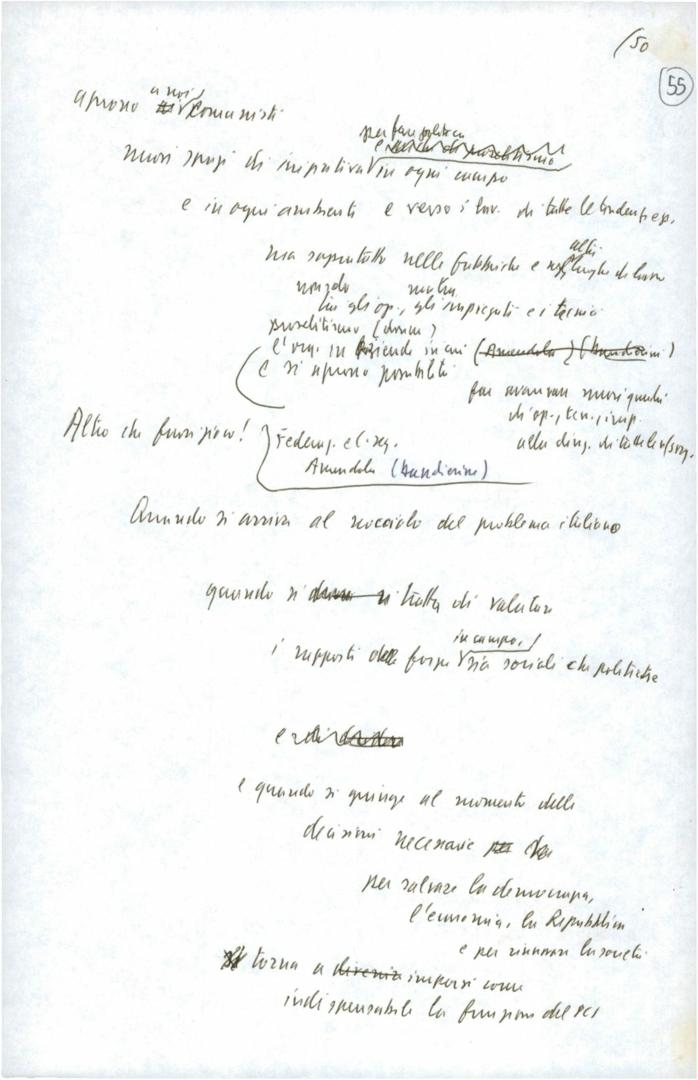 /50
55
a noi
aprono comunisti
per fare politica
nuovi spazi di iniziativa in ogni campo
e in ogni ambienti e verso i lav. di tutte le tendenze
ma soprattutto nelle fabbriche e negli altri luoghi di lavoro
tra gli op., gli impiegati e i tecnici
proselitismo (donne)
l'org. in aziende in cui (Amendola) (Bandiorini)
e si aprono possibilità
far avanzare nuovi quadri
di op., tec., imp.
alla direz. di tutte le ns/org.
Altro che funzione!
Federaz. e C. reg.
Amendola
Quando si arriva al nocciolo del problema italiano
quando si tratta di valutare
in campo,
i rapporti delle forze sia sociali che politiche
e
e quando si giunge al momento delle
decisioni necessarie
per salvare la democrazia,
l'economia, la Repubblica
e per rinnovare la società
torna a imporsi come
indispensabile la funzione del PCI